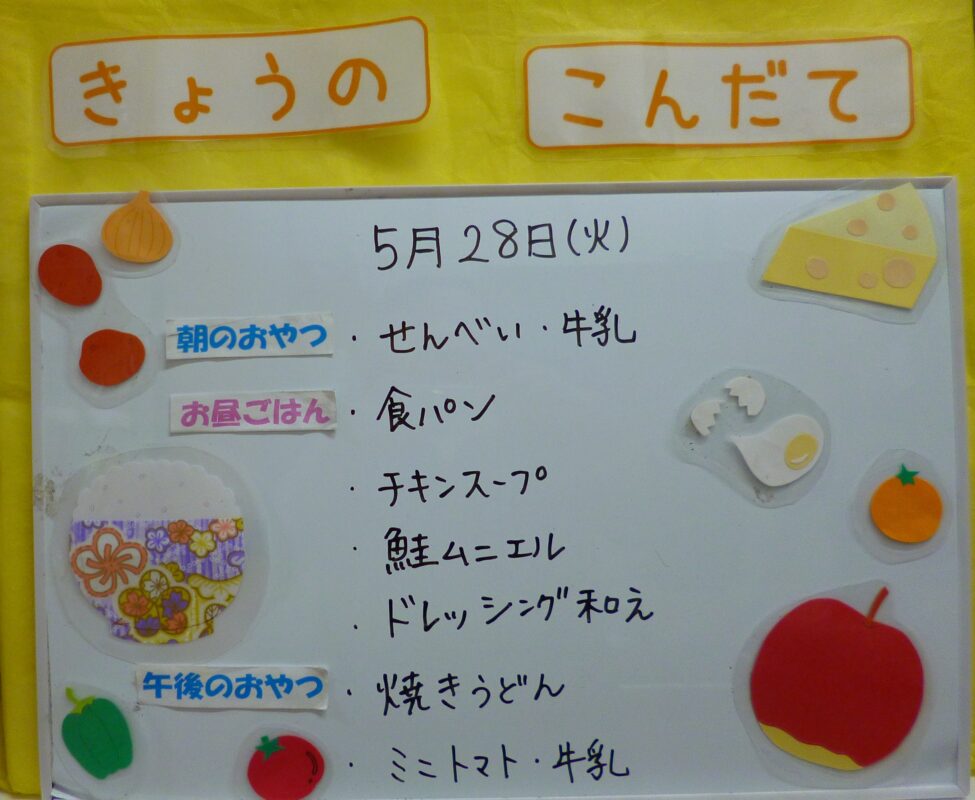 きょうの こんだて
5月28日(火)
朝のおやつ ・せんべい・牛乳
お昼ごはん ・食パン
・チキンスープ
・鮭ムニエル
・ドレッシング和え
午後のおやつ ・焼きうどん
・ミニトマト・牛乳